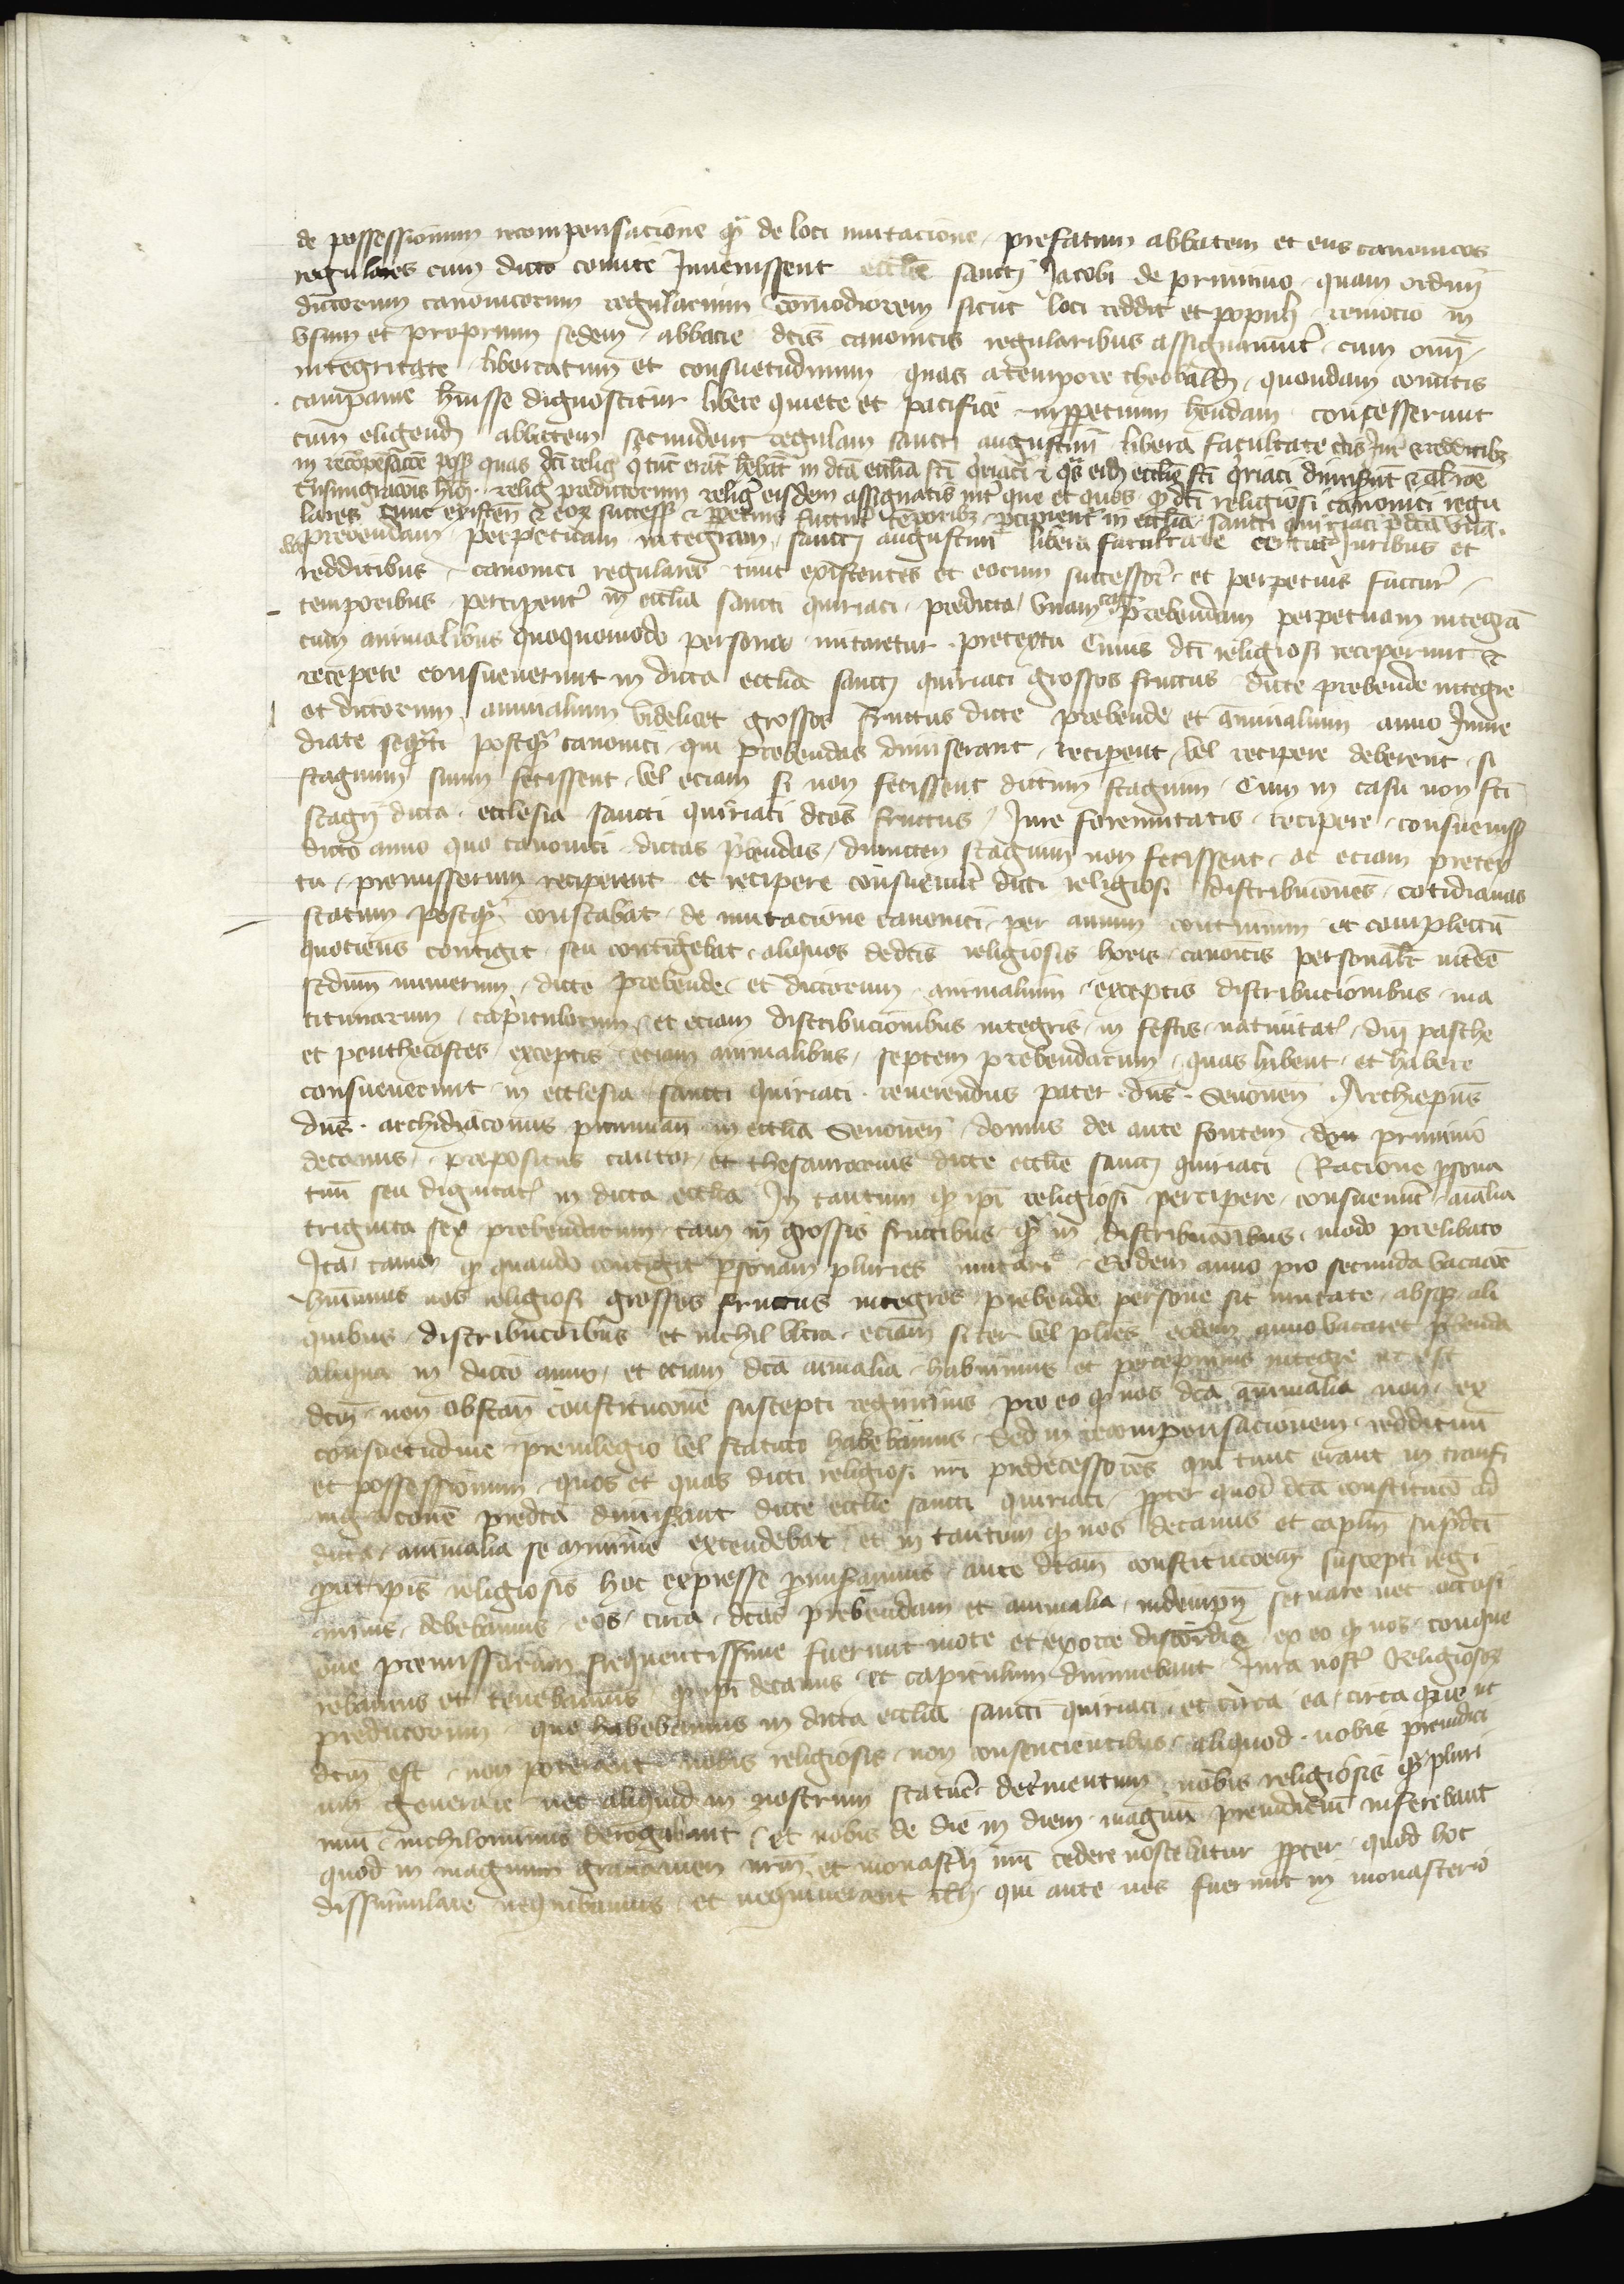 de possessionum recompensacione qm̄ de loci mutacione prefatum abbatem et eius canonicos
regulares cum dicto comite Inuenissent eccliē sancti Jacobi de pruuino quam ordini
dictorum canonicorum regularium comodiorem sicut loci reddit et populi remocio in
vsum et proprium sedem abbacie dcīs canonicis regularibus assignarunt cum omī
integritate libertatum et consuetudinum quas a tempore theobaldi quondam comitis
campanie hūisse dignoscitur libere quiete et pacifice inperpetuum hēndam concesserunt
cum eligendi abbatem secundum regulam sancti augustini libera facultate
in recōpēsacōe poss quas dcī relig q̄ tūc erāt hēbāt in dcā ecclīa scī qriaci
religꝫ predictorum religꝫ eisdem assignatis que et quos qd dcī religiosi canonici regu
lares tunc existen successꝫ ppetuis futur tēporibꝫ pcipient in ecclīa sancti quiriaci pdcā vnā
prebendam perpetuam integram sancti augustini libera facultate certis Juribus et
redditibus canonici regulares tunc existentes et eorum successor et perpetuis futur
temporibus percipient in ecclīa sancti quiriaci predicta vnam prebendam perpetuam integrā
cum animalibus quoquomodo persona mutaretur pretextu Cuius dcī religiosi receperunt et
recepere consueuerunt in dicta ecclīa sancti quiriaci grossos fructus dicte prebende integre
et dictorum animalium videlicet grossos fructus dicte prebende et animalium anno Inme
diate sequēti postqm̄ canonici qui prebendas dimiserant recipeut vel recipere deberent si
stagium suum fecissent vel eciam si non fecissent dictum stagium Cum in casu non fcī
stagij dicta ecclesia sancti quiriaci dcōs fructus Jure forennitatis recipere consueuiss
dicto anno quo canonici dictas pbendas dimicten stagium non fecissent ac eciam pretex
tu premissorum reciperent et recipere consueuerūt dicti religiosi distribucōnes cotidianas
statum postqm̄ constabat de mutacione canonici per annum continuum et complectū
quotiens contigit seu contigebat aliquos dedcīs religiosis horis canonicis personalīr intēē
scdūm numerum dicte prebende et dictorum animalium exceptis distribucionibus ma
titinarum capitulorum et eciam distribucionibus integris in festis natiuitatꝫ dnī pasche
et penthecostes exceptis eciam animalibus septem prebendarum quas habent et habere
consueuerunt in ecclesia sancti quiriaci reuerendus pater dnꝫ Senonen Archiepūs
dnꝫ archidiaconus pruuinan in ecclīa Senonen domus dei ante fontem de pruuino
decanus prepositus cantor et thesaurarius dicte ecclīe sancti quiriaci Racione psona
tuū seu dignitatꝫ in dicta ecclīa In tantum qd ipī religiosi percipere consueuerūt aīalia
triginta sex prebendarum tam in grossis fructibus qm̄ in distribucōibus modo prelibato
Ita tamen qd quando contigit personam pluries mutari Eodem anno pro secunda vacacōe
hūimus nos religiosi grossos fructus integros prebende persone sit mutate absqꝫ ali
quibus distribucōibus et nichil vltra eciam si ter vel plīes eodem anno vacaret pbenda
aliqua in dicto anno et eciam dcā animalia habuimus et percepimus integre ut est
dcm̄ non obstan constitucōne suscepti regiminis pro eo qd nos dcā animalia non ex
consuetudine preuilegio vel statuto habebamus Sed in recompensacionem reddituū
et possessionum quos et quas dicti religiosi nrī predecessores qui tunc erant in transi
migracōne predcā dimiserant dicte ecclīe sancti quiriaci ppter quod dcā constitucō ad
dicta animalia se minime extendebat et in tantum qd nos decanus et caplm̄ supdcī
prout ipīs religiosis hoc expresse promiseramus ante dcām constitucōem suscepti regi
minis debebamus eos circa dcās prebendam et animalia indempn seruare nec occasi
one premissorum frequentissime fuerunt mote et exorte discordie ex eo qd nos conque
rebamur et tenebamus qd ipī decanus et capitulum diminuebant Jura nostrꝫ Religiosoꝝ
predictorum que habebamus in dicta ecclīa sancti quiriaci et circa ea circa que ut
dcm̄ est non poterant nobis religiosis non consencientibus aliquod nobis preiudici
um generare nec aliquid in nostrum statuere detrimentum nobis religiosis qm̄ pluri
mū nichilominus derogabant et nobis de die in diem magnū preiudiciū inferebant
quod in magnum grauamen nrm̄ et monasterij nrī cedere noscebatur ppter quod hoc
dissimulare nequibamus et nequiuerant illi qui ante nos fuerunt in monasterio